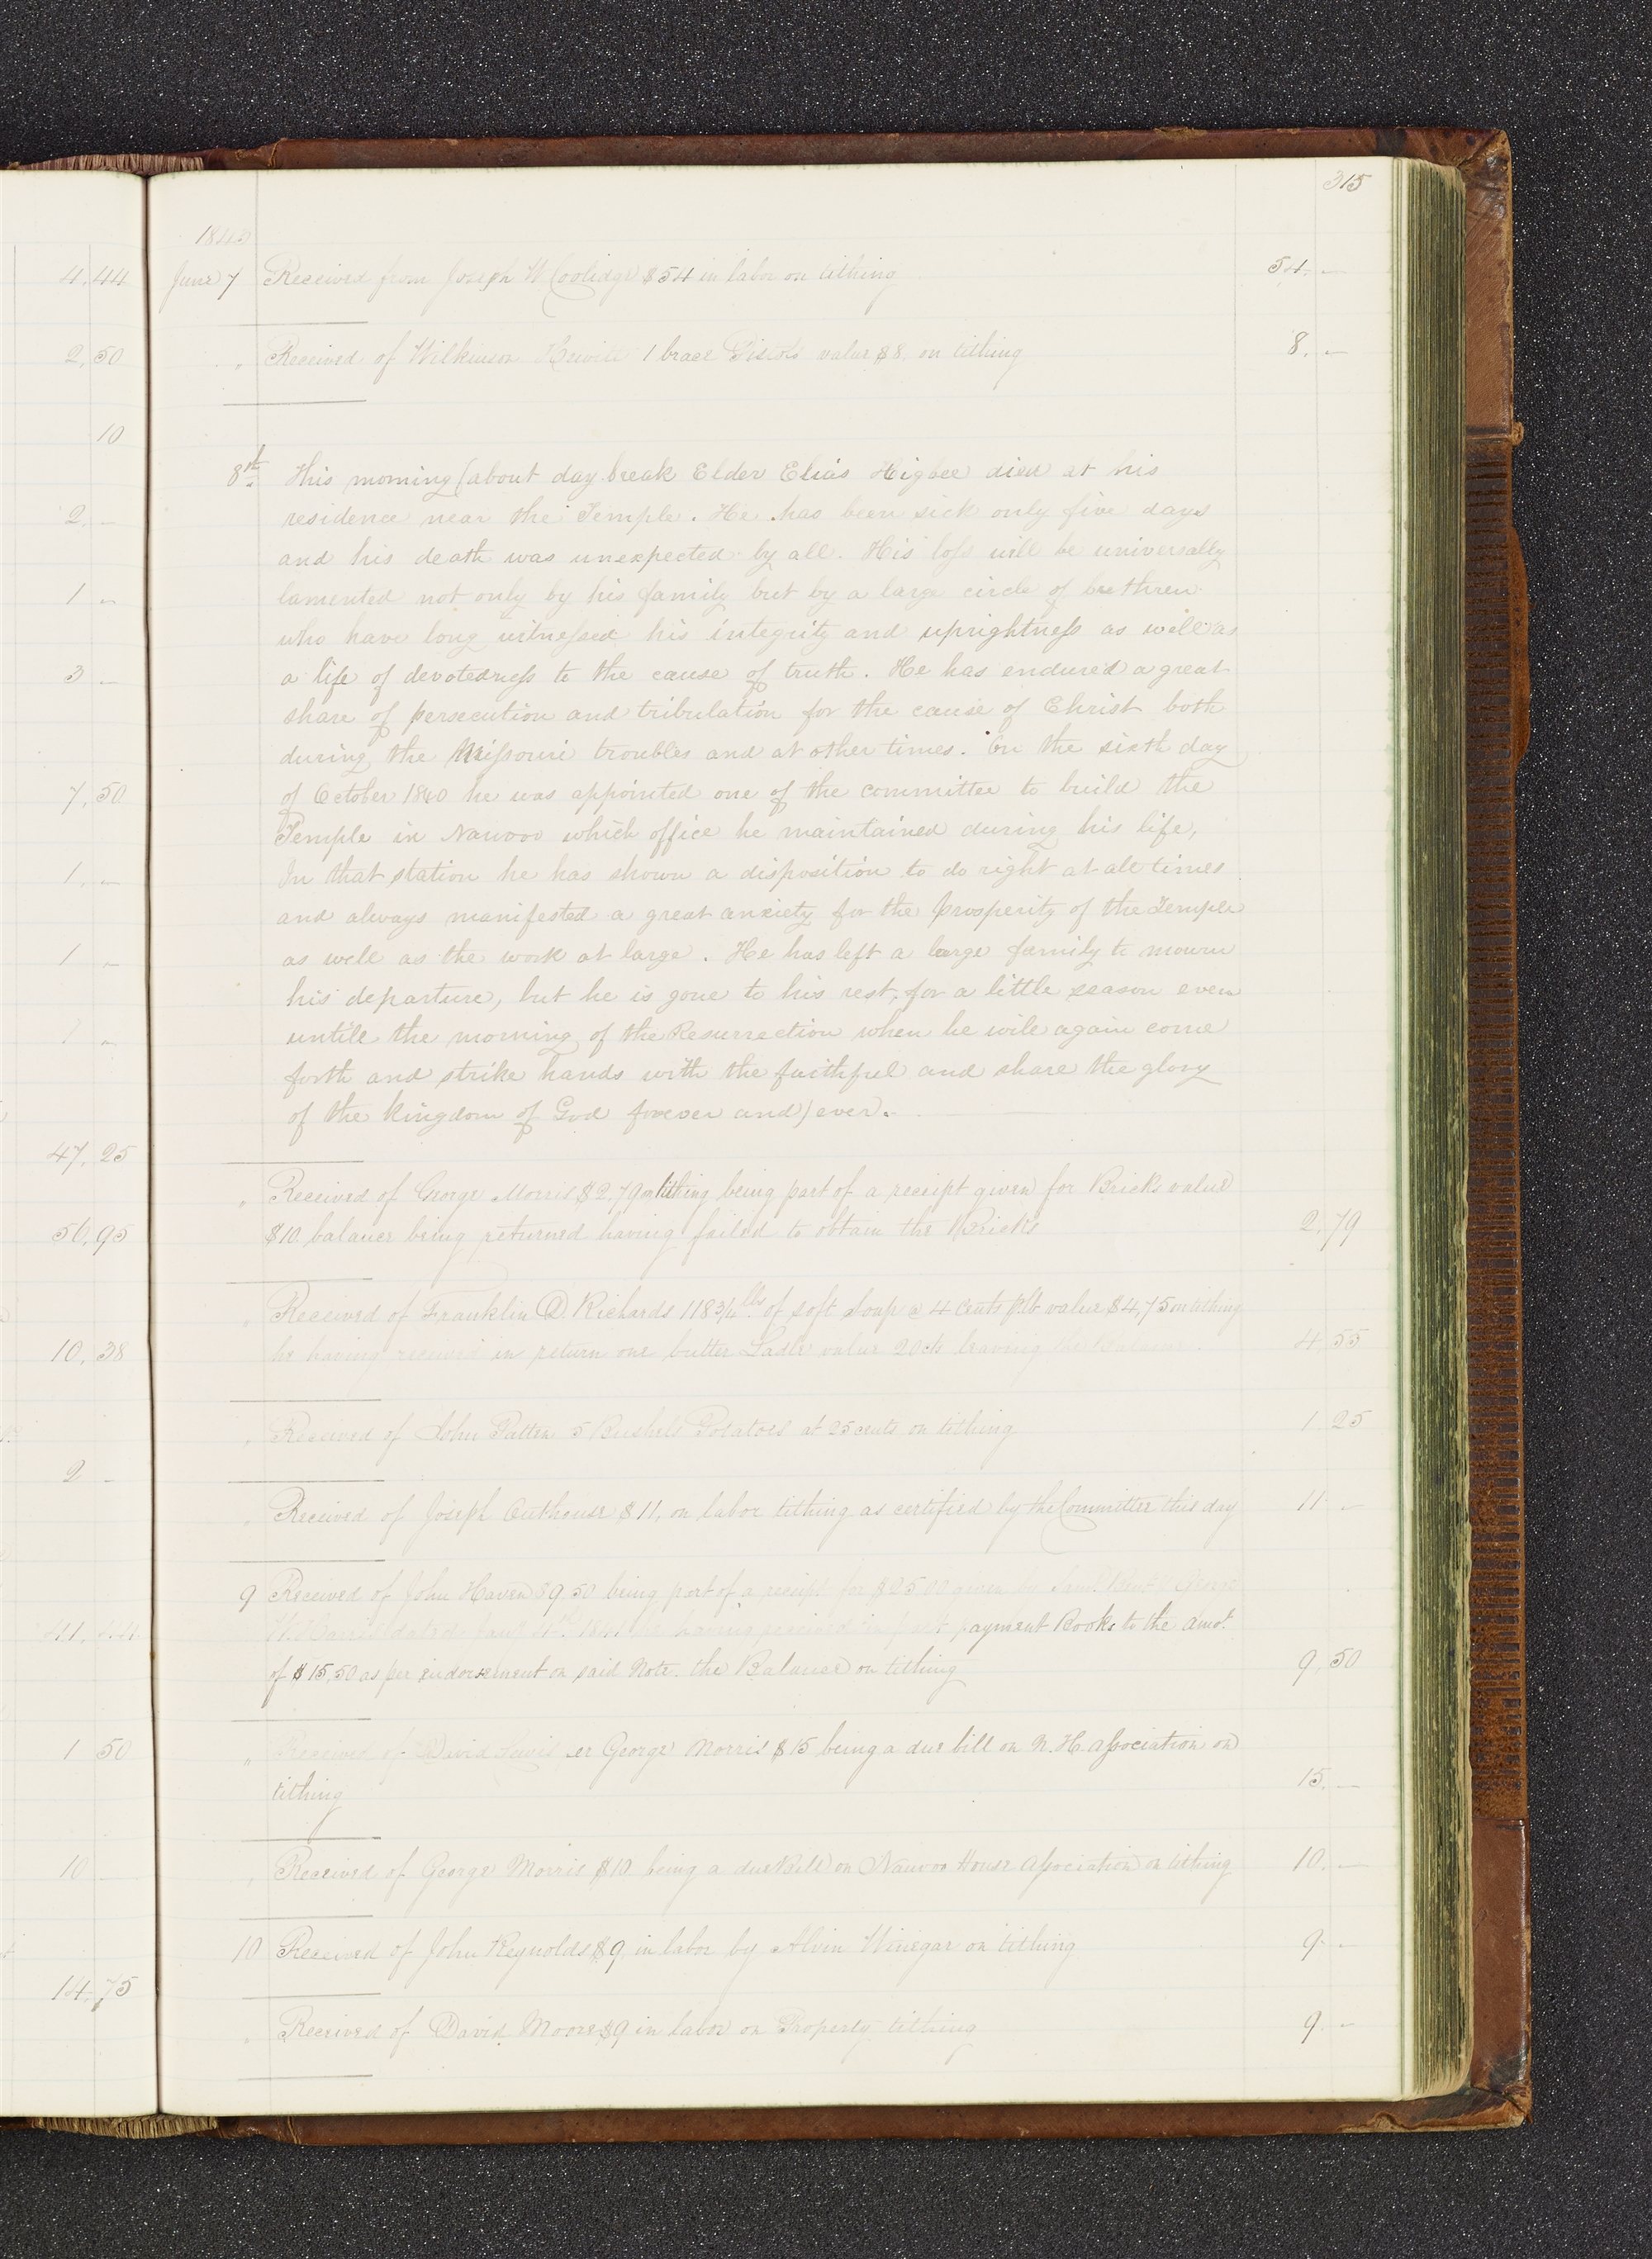 315
1843
June 7 Received from Joseph W Coolidge $54 in labor on tithing 54. –
" Received of Wilkinson Hewitt 1 brace Pistols value $8, on tithing 8. –
8th This morning (about day break Elder Elias Higbee died at his
residence near the Temple. He has been sick only five days
and his death was unexpected by all. His loss will be universally
lamented not only by his family but by a large circle of brethren
who have long witnessed his integrity and uprightness as well as
a life of devotedness to the cause of truth. He has endured a great
share of persecution and tribulation for the cause of Christ both
during the Missouri troubles and at other times. On the sixth day
of October 1840 he was appointed one of the committee to build the
Temple in Nauvoo which office he maintained during his life,
In that station he has shown a disposition to do right at all times
and always manifested a great anxiety for the prosperity of the Temple
as well as the work at large. He has left a large family to mourn
his departure, but he is gone to his rest, for a little season even
untill the morning of the Resurrection when he will again come
forth and strike hands with the faithful and share the glory
of the kingdom of God forever and) ever.
" Received of George Morris $2.79 on tithing being part of a receipt given for Bricks value
$10. balance being returned having failed to obtain the Bricks 2,79
" Received of Franklin D. Richards 118 3/4 lbs of soft Soap @ 4 Cents P lb value $4,75 on tithing
he having received in return one butter Ladle value 20cts leaving the Balance. 4,55
" Received of John Patten 5 Bushels Potatoes at 25 cents on tithing 1 25
" Received of Joseph Outhouse $11, on labor tithing as certified by the Committee this day 11 –
9 Received of John Haven $9.50 being part of a receipt for $25.00 given by Saml. Bent & George
W. Harris dated 1841 he having received in part payment Books to the amot.
of $15,50 as per endorsement on said Note. the Balance on tithing 9,50
" Received of David Lewis er George Morris $15 being a due bill on N. H. Association on
tithing 15. –
" Received of George Morris $10 being a due Bill on Nauvoo House Association on tithing 10. –
10 Received of John Reynolds $9 in labor by Alvin Winegar on tithing 9 –
" Received of David Moore $9 in labor on Property tithing 9. –
4,44
2,50
10
2. –
1 –
3 –
7,50
1. –
1 –
1 –
47,25
56,95
10,38
2 –
1 50
10 –
14,75